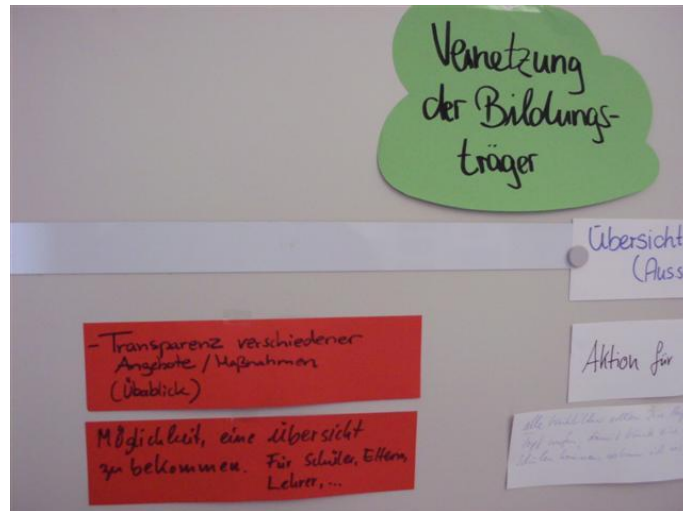 Vernetzung
der Bildungs-
träger
Übersicht
(Auss
- Transparenz verschiedener
Angebote / Maßnahmen
(Überblick)
Aktion für
Möglichkeit, eine Übersicht
zu bekommen. Für Schüler, Eltern,
Lehrer, ...
alle